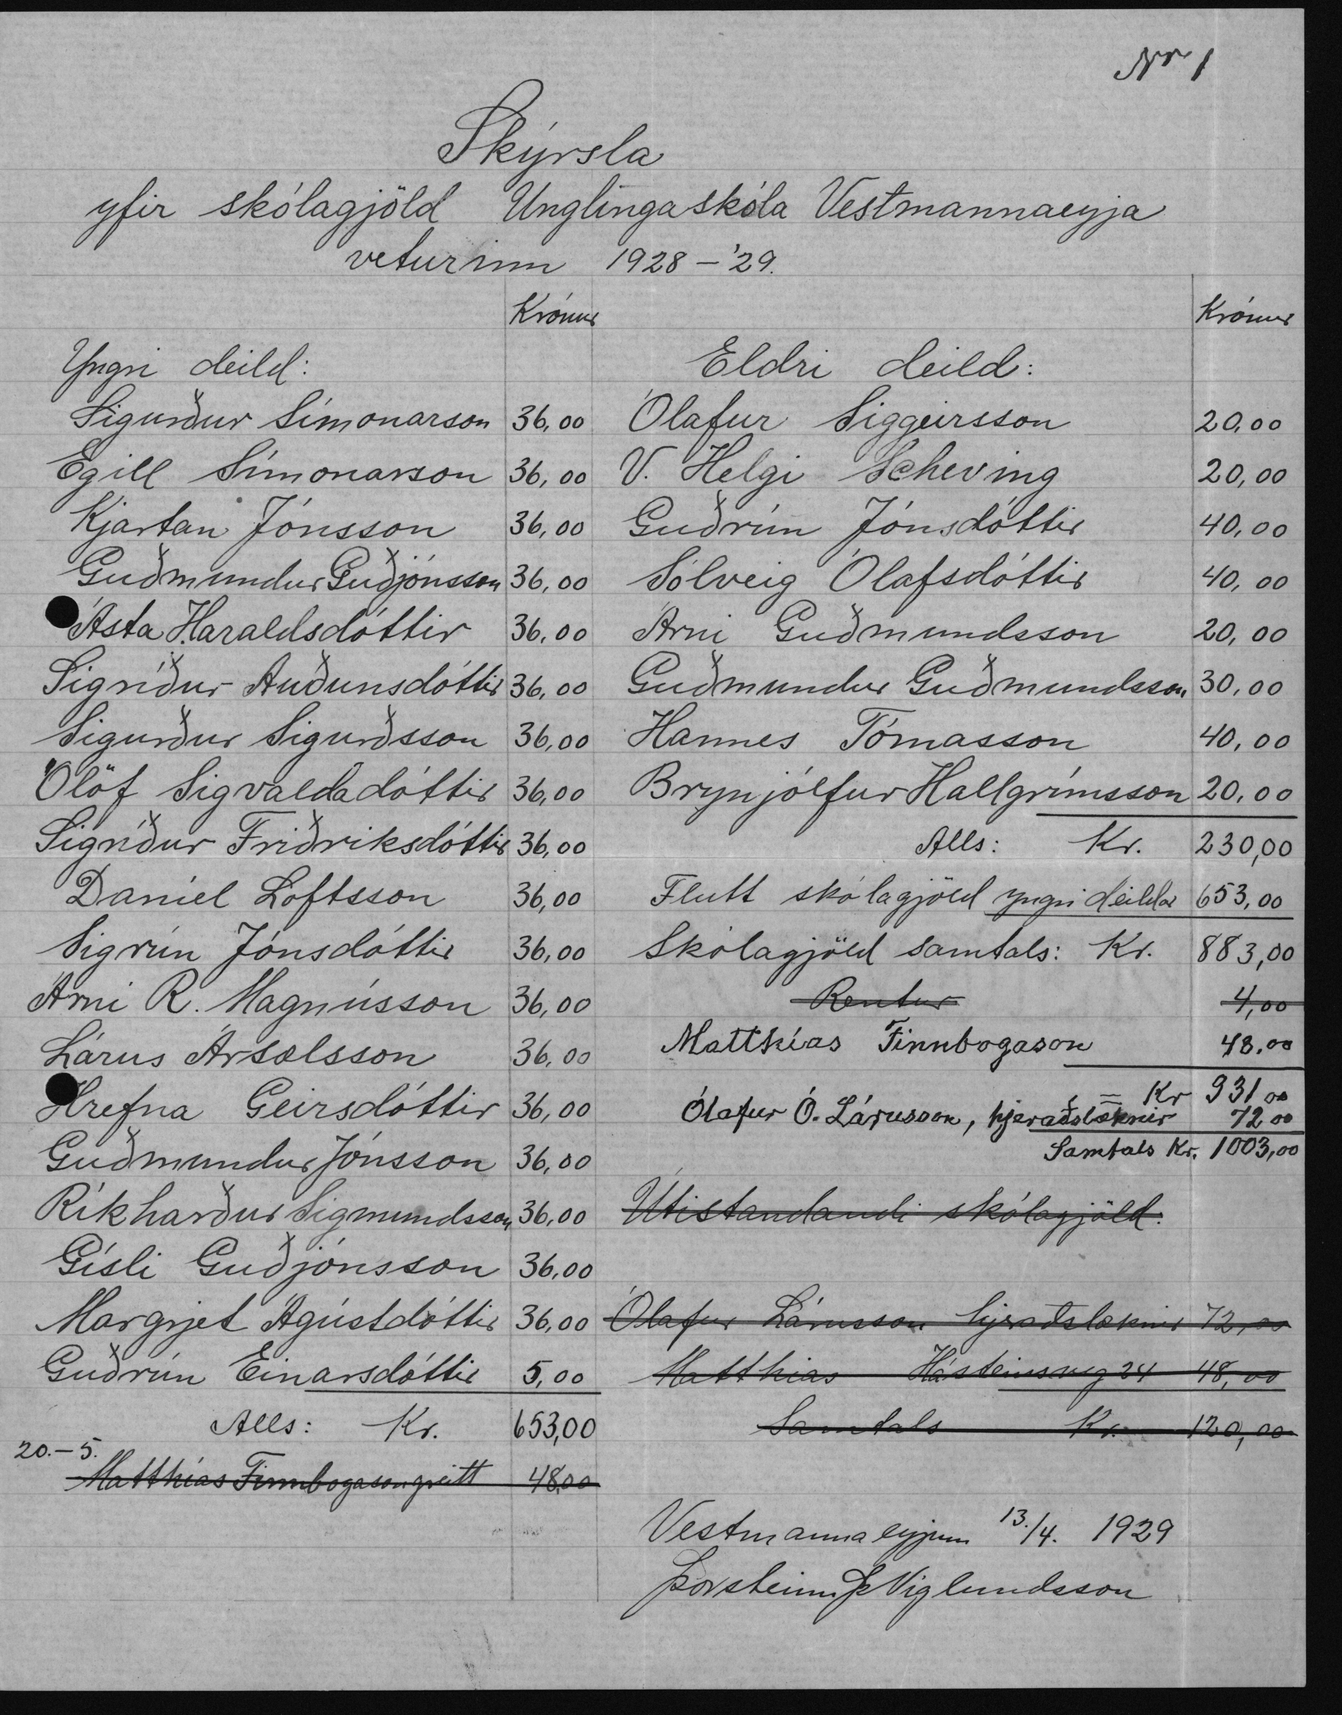 Nr 1
Skýrsla
yfir skólagjöld Unglingaskóla Vestmannaeyja
veturinn 1928 – '29.
Krónur
Yngri deild:
Sigurður Símonarson 36,00
Egill Símonarson 36,00
Kjartan Jónsson 36,00
Guðmundur Guðjónsson 36,00
Ásta Haraldsdóttir 36,00
Sigríður Auðunsdóttir 36,00
Sigurður Sigurðsson 36,00
Ólöf Sigvaldadóttir 36,00
Sigríður Friðriksdóttir 36,00
Daníel Loftsson 36,00
Sigrún Jónsdóttir 36,00
Árni R. Magnússon 36,00
Lárus Ársælsson 36,00
Hrefna Geirsdóttir 36,00
Guðmundur Jónsson 36,00
Ríkharður Sigmundsson 36,00
Gísli Guðjónsson 36,00
Margrjet Ágústdóttir 36,00
Guðrún Einarsdóttir 5,00
Alls: Kr. 653,00
20.–5.
Matthías Finnbogason greitt 48,00
Krónur
Eldri deild:
Ólafur Siggeirsson 20,00
V. Helgi Scheving 20,00
Guðrún Jónsdóttir 40,00
Sólveig Ólafsdóttir 40,00
Árni Guðmundsson 20,00
Guðmundur Guðmundsson 30,00
Hannes Tómasson 40,00
Brynjólfur Hallgrímsson 20,00
Alls: Kr. 230,00
Flutt skólagjöld yngri deildar 653,00
Skólagjöld samtals: Kr. 883,00
Rentur 4,00
Matthías Finnbogason 48,00
Kr 931,00
Ólafur Ó. Lárusson, hjeraðslæknir 72,00
Samtals Kr. 1003,00
Útistandandi skólagjöld:
Ólafur Lárusson hjeraðslæknir 72,00
Matthías Hásteinsveg 24 48,00
Samtals Kr. 120,00
Vestmannaeyjum 13./4. 1929
Þorsteinn Þ Víglundsson